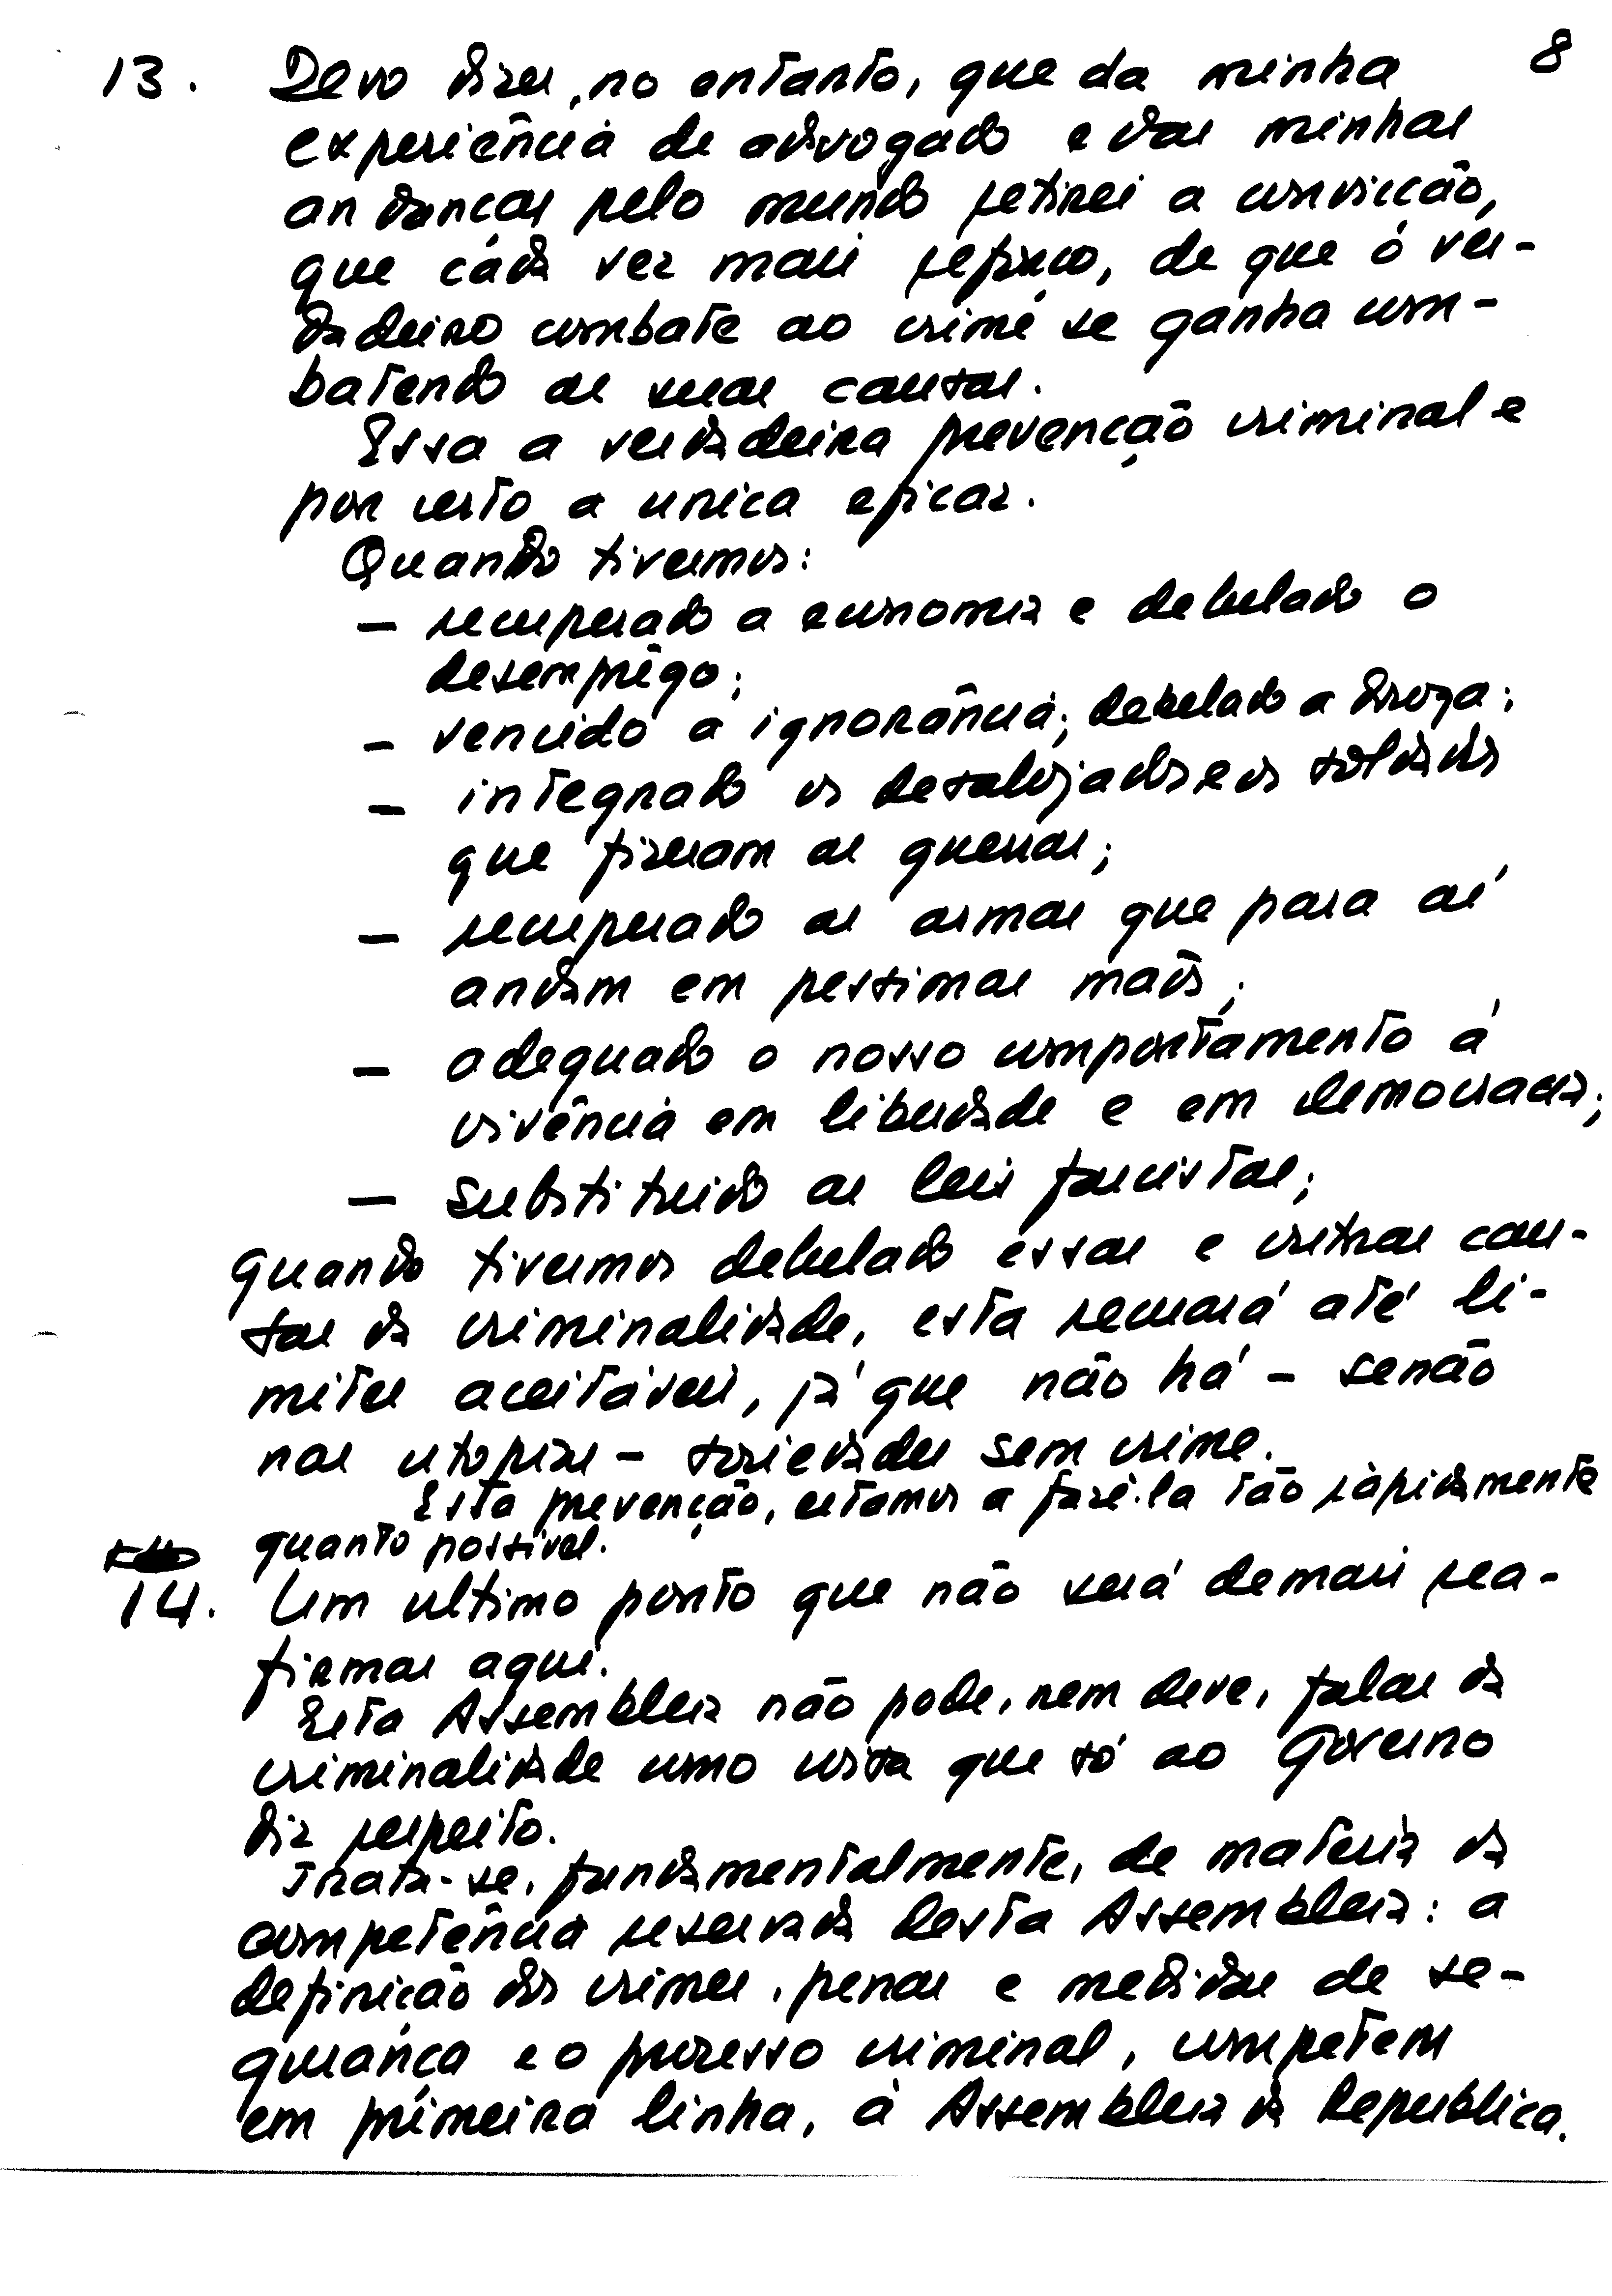 8
13. Devo dizer, no entanto, que da minha
experiência de advogado e das minhas
andanças pelo mundo retirei a convicção,
que cada vez mais reforço, de que o ver-
dadeiro combate ao crime se ganha com-
batendo as suas causas.
Essa a verdadeira prevenção criminal e
por certo a unica eficaz.
Quando tivermos:
— recuperado a economia e debelado o
desemprêgo;
— vencido a ignorância; debelado a droga;
— integrado os desalojados e os soldados
que fizeram as guerras;
— recuperado as armas que para aí
andam em pessimas mãos;
— adequado o nosso comportamento à
vivência em liberdade e em democracia;
— substituido as leis fascistas;
quando tivermos debelado essas e outras cau-
sas da criminalidade, esta recuará até li-
mites aceitáveis, já que não há — senão
nas utopias — sociedades sem crime.
Esta prevenção, estamos a fazê-la tão ràpidamente
quanto possivel.
14. Um ultimo ponto que não será demais rea-
firmar aqui.
Esta Assembleia não pode, nem deve, falar da
criminalidade como coisa que só ao Governo
diz respeito.
Trata-se, fundamentalmente, de materia da
competência reservada desta Assembleia: a
definição dos crimes, penas e medidas de se-
gurança e o processo criminal, competem
em primeira linha, à Assembleia da Republica.